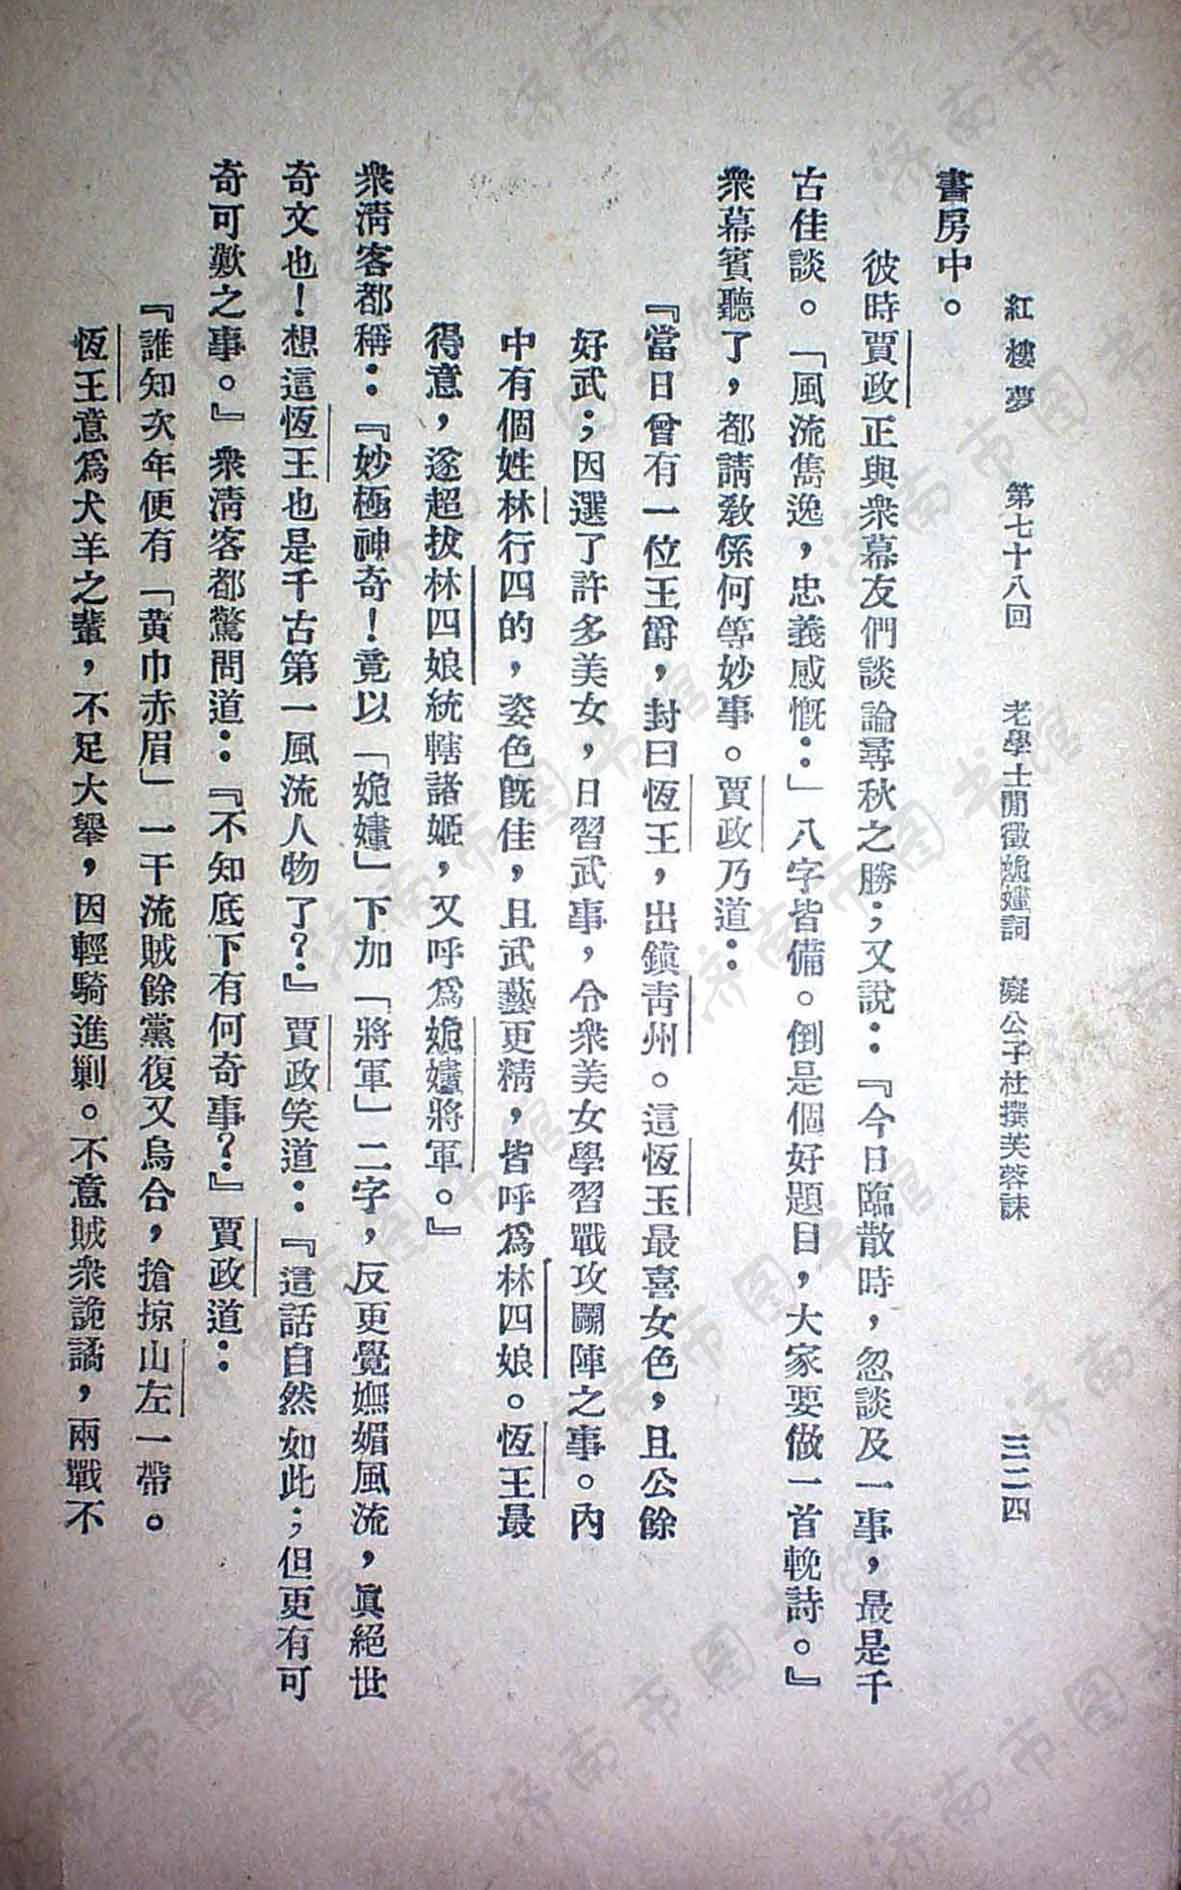 紅樓夢　第七十八回　老學士閒徵姽嫿詞　癡公子杜撰芙蓉誄　三二四
書房中。
彼時賈政正與衆幕友們談論尋秋之勝；又說：『今日臨散時，忽談及一事，最是千
古佳談。「風流雋逸，忠義感慨：」八字皆備。倒是個好題目，大家要做一首輓詩。』
衆幕賓聽了，都請敎係何等妙事。賈政乃道：
『當日曾有一位王爵，封曰恆王，出鎭靑州。這恆玉最喜女色，且公餘
好武；因選了許多美女，日習武事，令衆美女學習戰攻鬭陣之事。內
中有個姓林行四的，姿色旣佳，且武藝更精，皆呼爲林四娘。恆王最
得意，遂超拔林四娘統轄諸姬，又呼爲姽嫿將軍。』
衆淸客都稱：『妙極神奇！竟以「姽嫿」下加「將軍」二字，反更覺嫵媚風流，眞絕世
奇文也！想這恆王也是千古第一風流人物了？』賈政笑道：『這話自然如此；但更有可
奇可歎之事。』衆淸客都驚問道：『不知底下有何奇事？』賈政道：
『誰知次年便有「黃巾赤眉」一干流賊餘黨復又烏合，搶掠山左一帶。
恆王意爲犬羊之輩，不足大舉，因輕騎進剿。不意賊衆詭譎，兩戰不
济南市图书馆